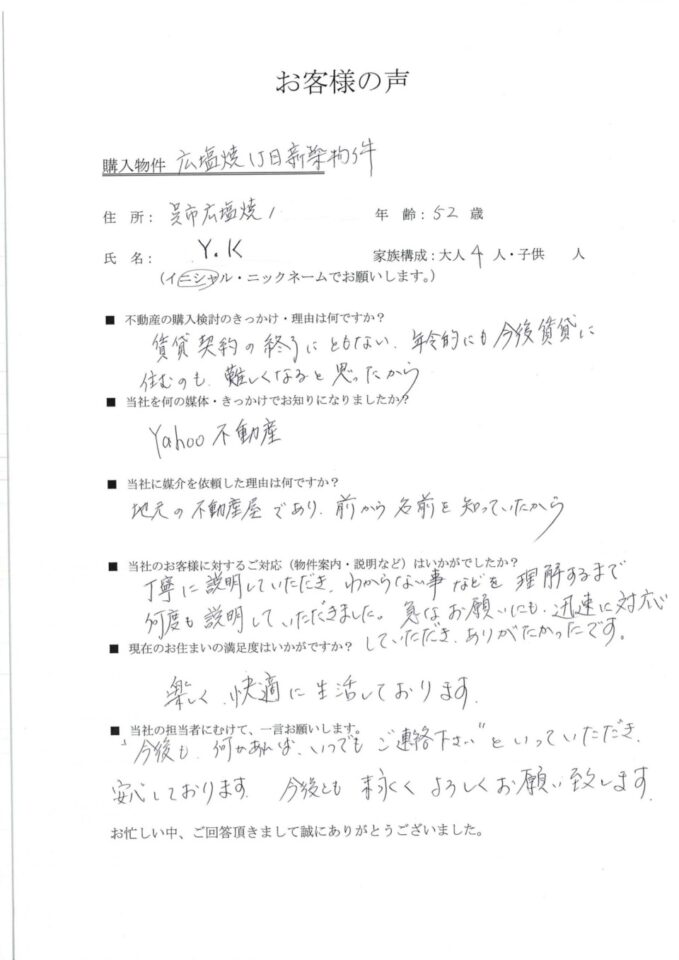 お客様の声
購入物件 広塩焼1丁目新築物件
住 所： 呉市広塩焼1 年 齢：52 歳
氏 名： Y.K 家族構成：大人 4 人・子供 人
（イニシャル・ニックネームでお願いします。）
■ 不動産の購入検討のきっかけ・理由は何ですか？
賃貸契約の終了にともない、年令的にも今後賃貸に
住むのも、難しくなると思ったから
■ 当社を何の媒体・きっかけでお知りになりましたか？
Yahoo不動産
■ 当社に媒介を依頼した理由は何ですか？
地元の不動産屋であり、前から名前を知っていたから
■ 当社のお客様に対するご対応（物件案内・説明など）はいかがでしたか？
丁寧に説明していただき、わからない事などを理解するまで
何度も説明していただきました。急なお願いにも、迅速に対応
していただき、ありがたかったです。
■ 現在のお住まいの満足度はいかがですか？
楽しく、快適に生活しております。
■ 当社の担当者にむけて、一言お願いします。
"今後も、何かあれば、いつでもご連絡下さい"といっていただき、
安心しております。今後とも末永くよろしくお願い致します。
お忙しい中、ご回答頂きまして誠にありがとうございました。